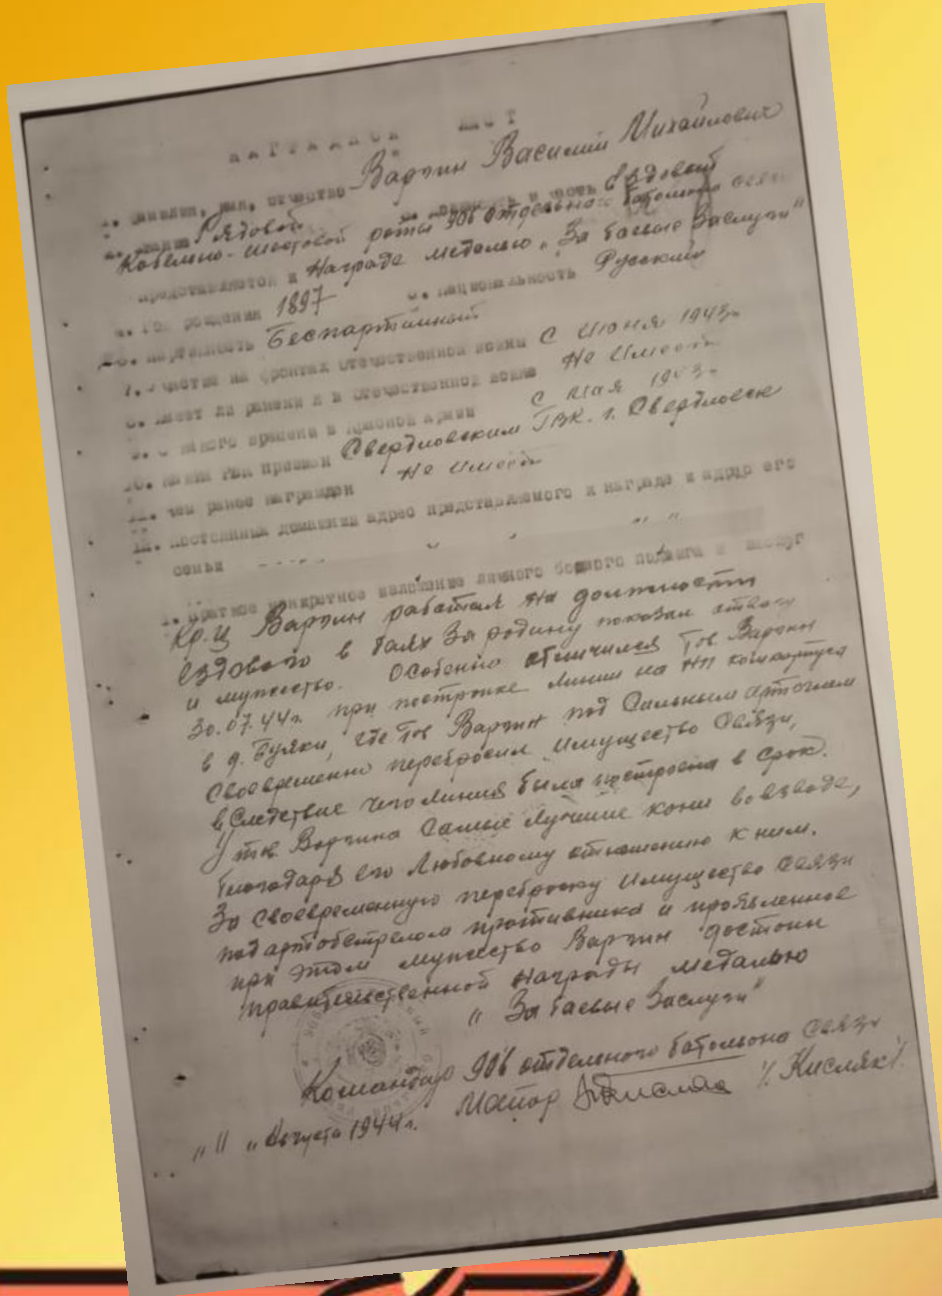 НАГРАДНОЙ ЛИСТ
1. Фамилия, имя, отчество Варгин Василий Михайлович
2. звание Рядовой 3. должность и часть ездовой
Кабельно-шестовой роты 906 отдельного батальона связи
представляется к Награде медалью „За боевые Заслуги"
4. Год рождения 1897 5. национальность Русский
6. партийность Беспартийный
7. участие на фронтах отечественной войны С Июня 1943г.
8. имеет ли ранения в отечественной войне Не Имеет
9. с какого времени в красной армии С Мая 1943г.
10. каким РВК призван Свердловским ГВК. г. Свердловск
11. чем ранее награжден Не имеет
12. постоянный домашний адрес представляемого к награде и адрес его
семьи
1. Краткое конкретное изложение личного боевого подвига и заслуг
Кр-ц Варгин работая на должности
ездового в боях За родину показал отвагу
и мужество. Особенно отличился Тов Варгин
30.07.44г. при постройке линии на НП
в д. Буяки, где Тов Варгин под Сильным артогнем
Своевременно перебросил имущество Связи,
в Следствие чего линия была построена в Срок.
У тов. Варгина Самые Лучшие кони во взводе,
благодаря его Любовному отношению к ним.
За своевременную переброску Имущество Связи
под артобстрелом противника и проявленное
при этом мужество Варгин достоин
правительственной Награды медалью
„За боевые Заслуги"
Командир 906 отдельного батальона Связи
Майор /Кисляк/.
„ " „Августа 1944г.